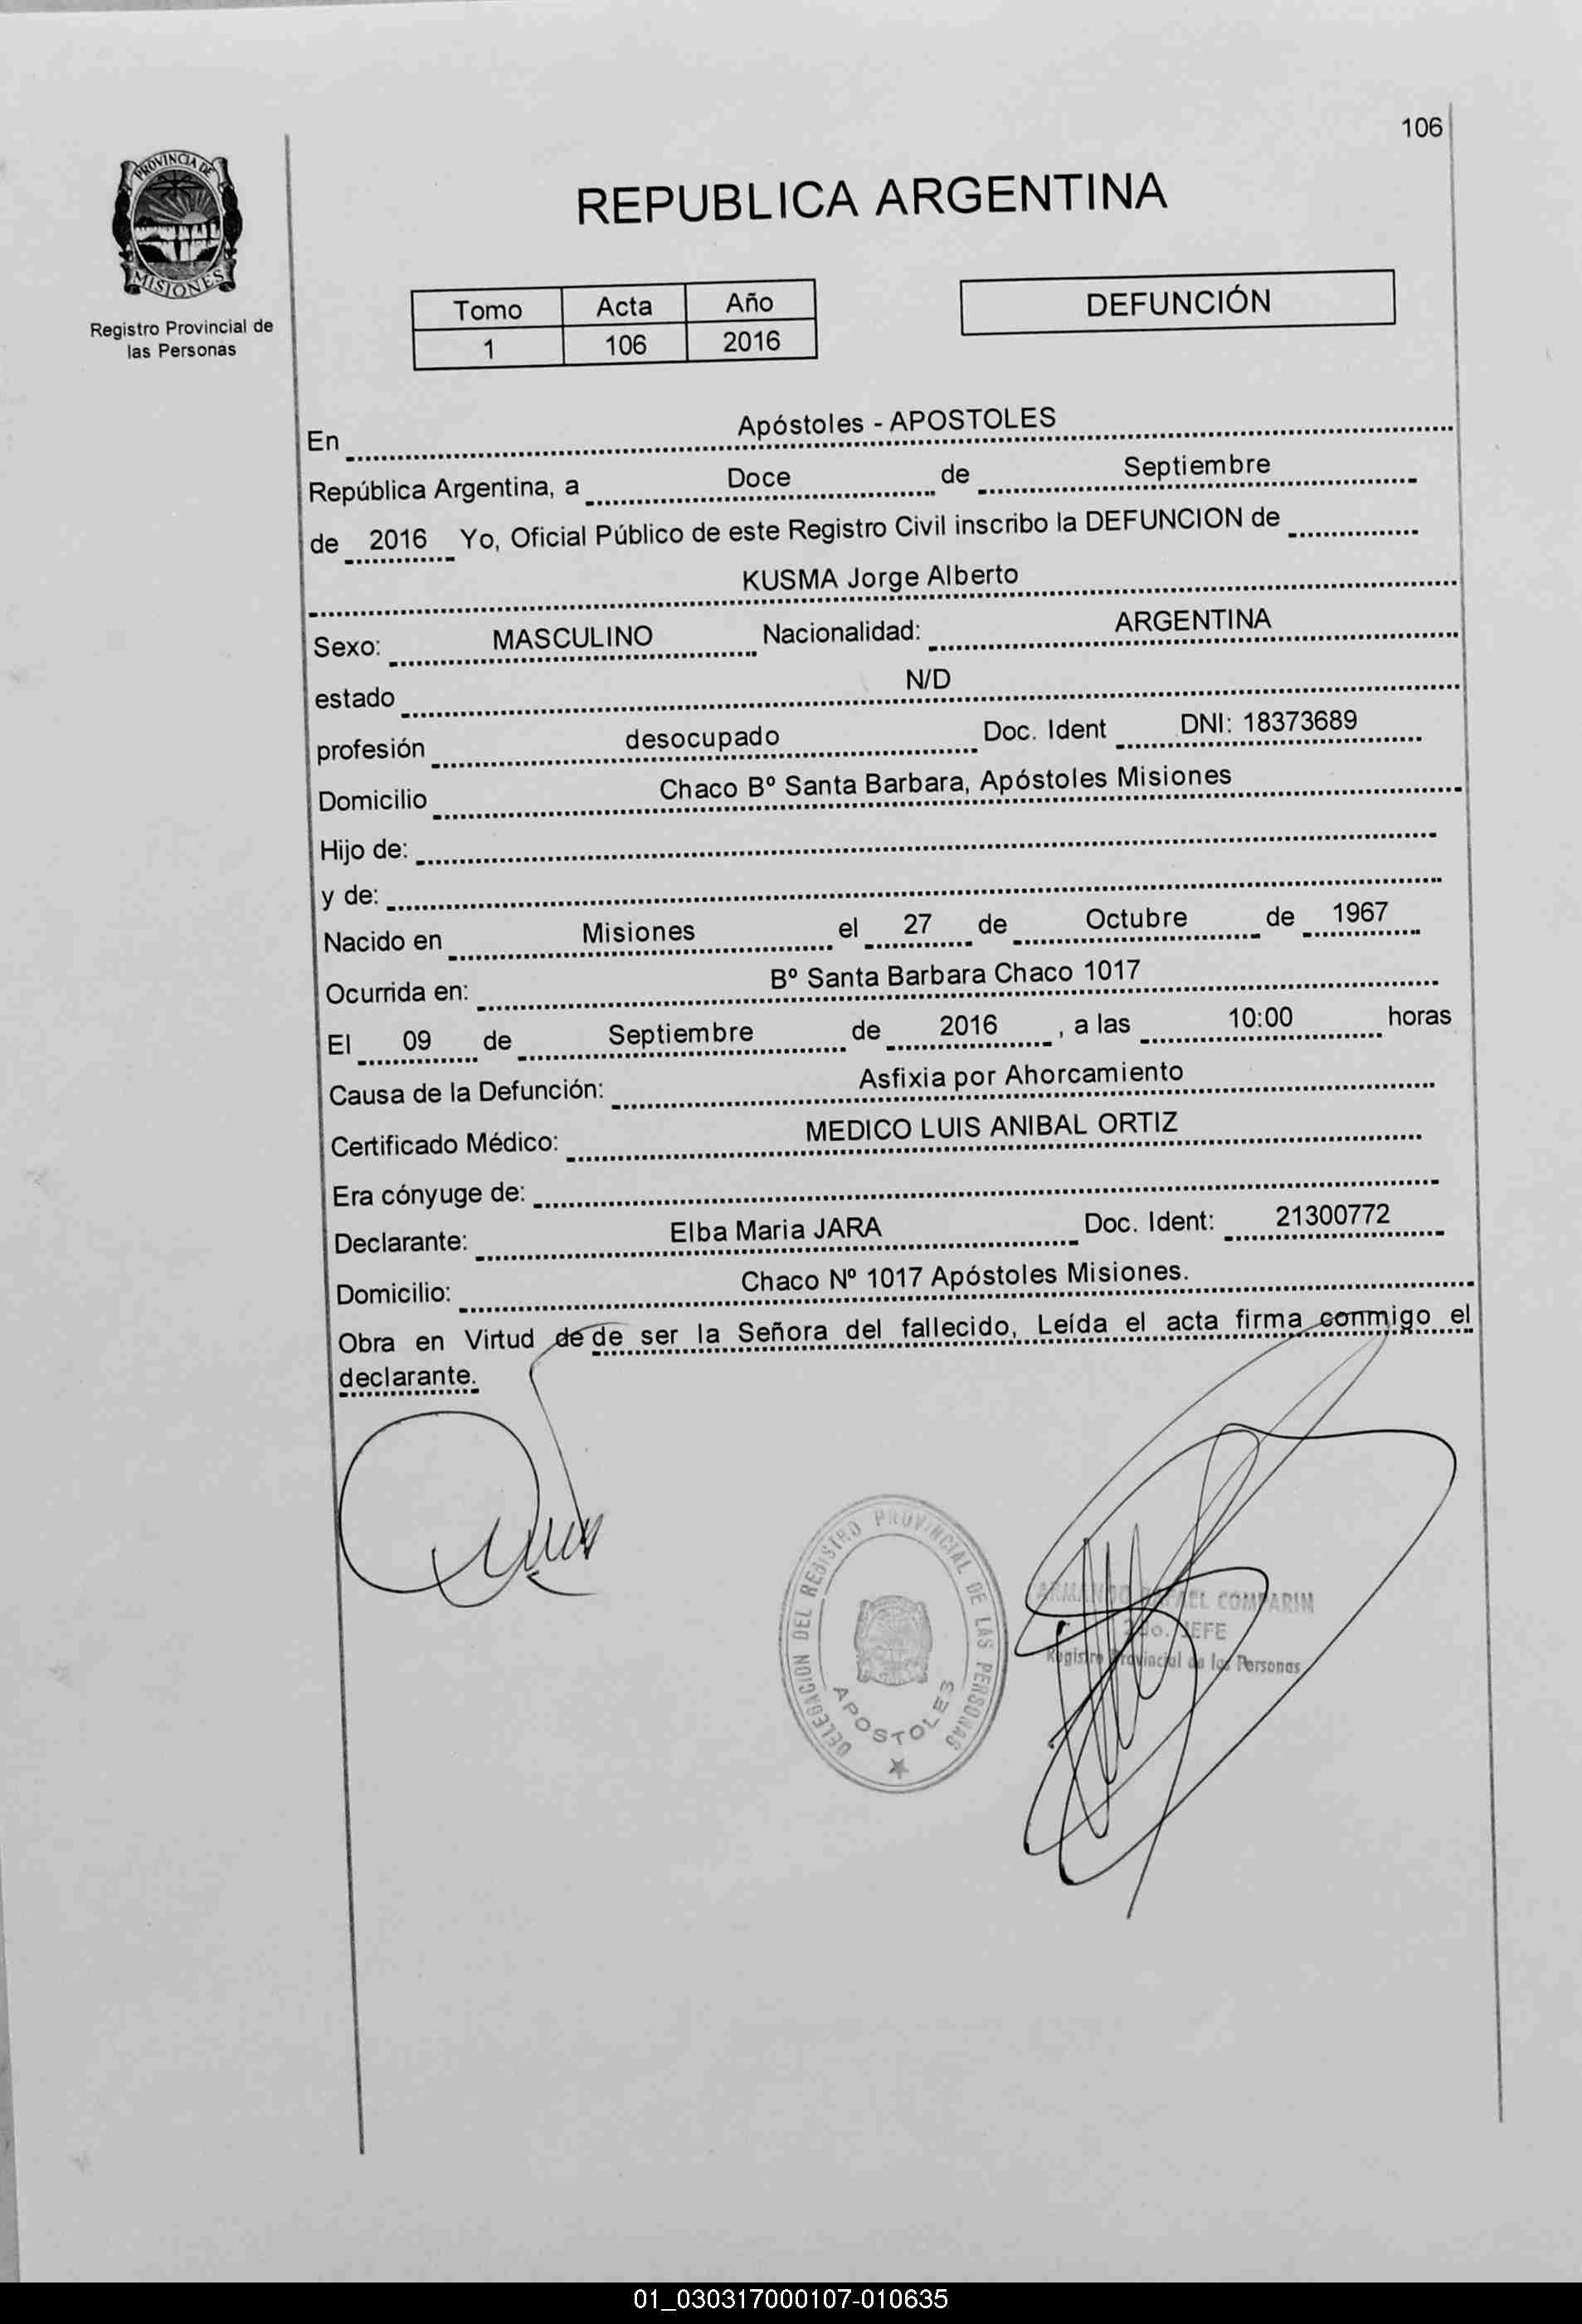 106
PROVINCIA DE
MISIONES
Registro Provincial de
las Personas
REPUBLICA ARGENTINA
Tomo Acta Año
1 106 2016
DEFUNCIÓN
En Apóstoles - APOSTOLES
República Argentina, a Doce de Septiembre
de 2016 Yo, Oficial Público de este Registro Civil inscribo la DEFUNCION de
KUSMA Jorge Alberto
Sexo: MASCULINO Nacionalidad: ARGENTINA
estado N/D
profesión desocupado Doc. Ident DNI: 18373689
Domicilio Chaco Bº Santa Barbara, Apóstoles Misiones
Hijo de:
y de:
Nacido en Misiones el 27 de Octubre de 1967
Ocurrida en: Bº Santa Barbara Chaco 1017
El 09 de Septiembre de 2016 , a las 10:00 horas
Causa de la Defunción: Asfixia por Ahorcamiento
Certificado Médico: MEDICO LUIS ANIBAL ORTIZ
Era cónyuge de:
Declarante: Elba Maria JARA Doc. Ident: 21300772
Domicilio: Chaco Nº 1017 Apóstoles Misiones.
Obra en Virtud de de ser la Señora del fallecido, Leída el acta firma conmigo el
declarante.
DELEGACION DEL REGISTRO PROVINCIAL DE LAS PERSONAS
APOSTOLES
ARMANDO RAFAEL COMPARIN
2do. JEFE
Registro Provincial de las Personas
01_030317000107-010635